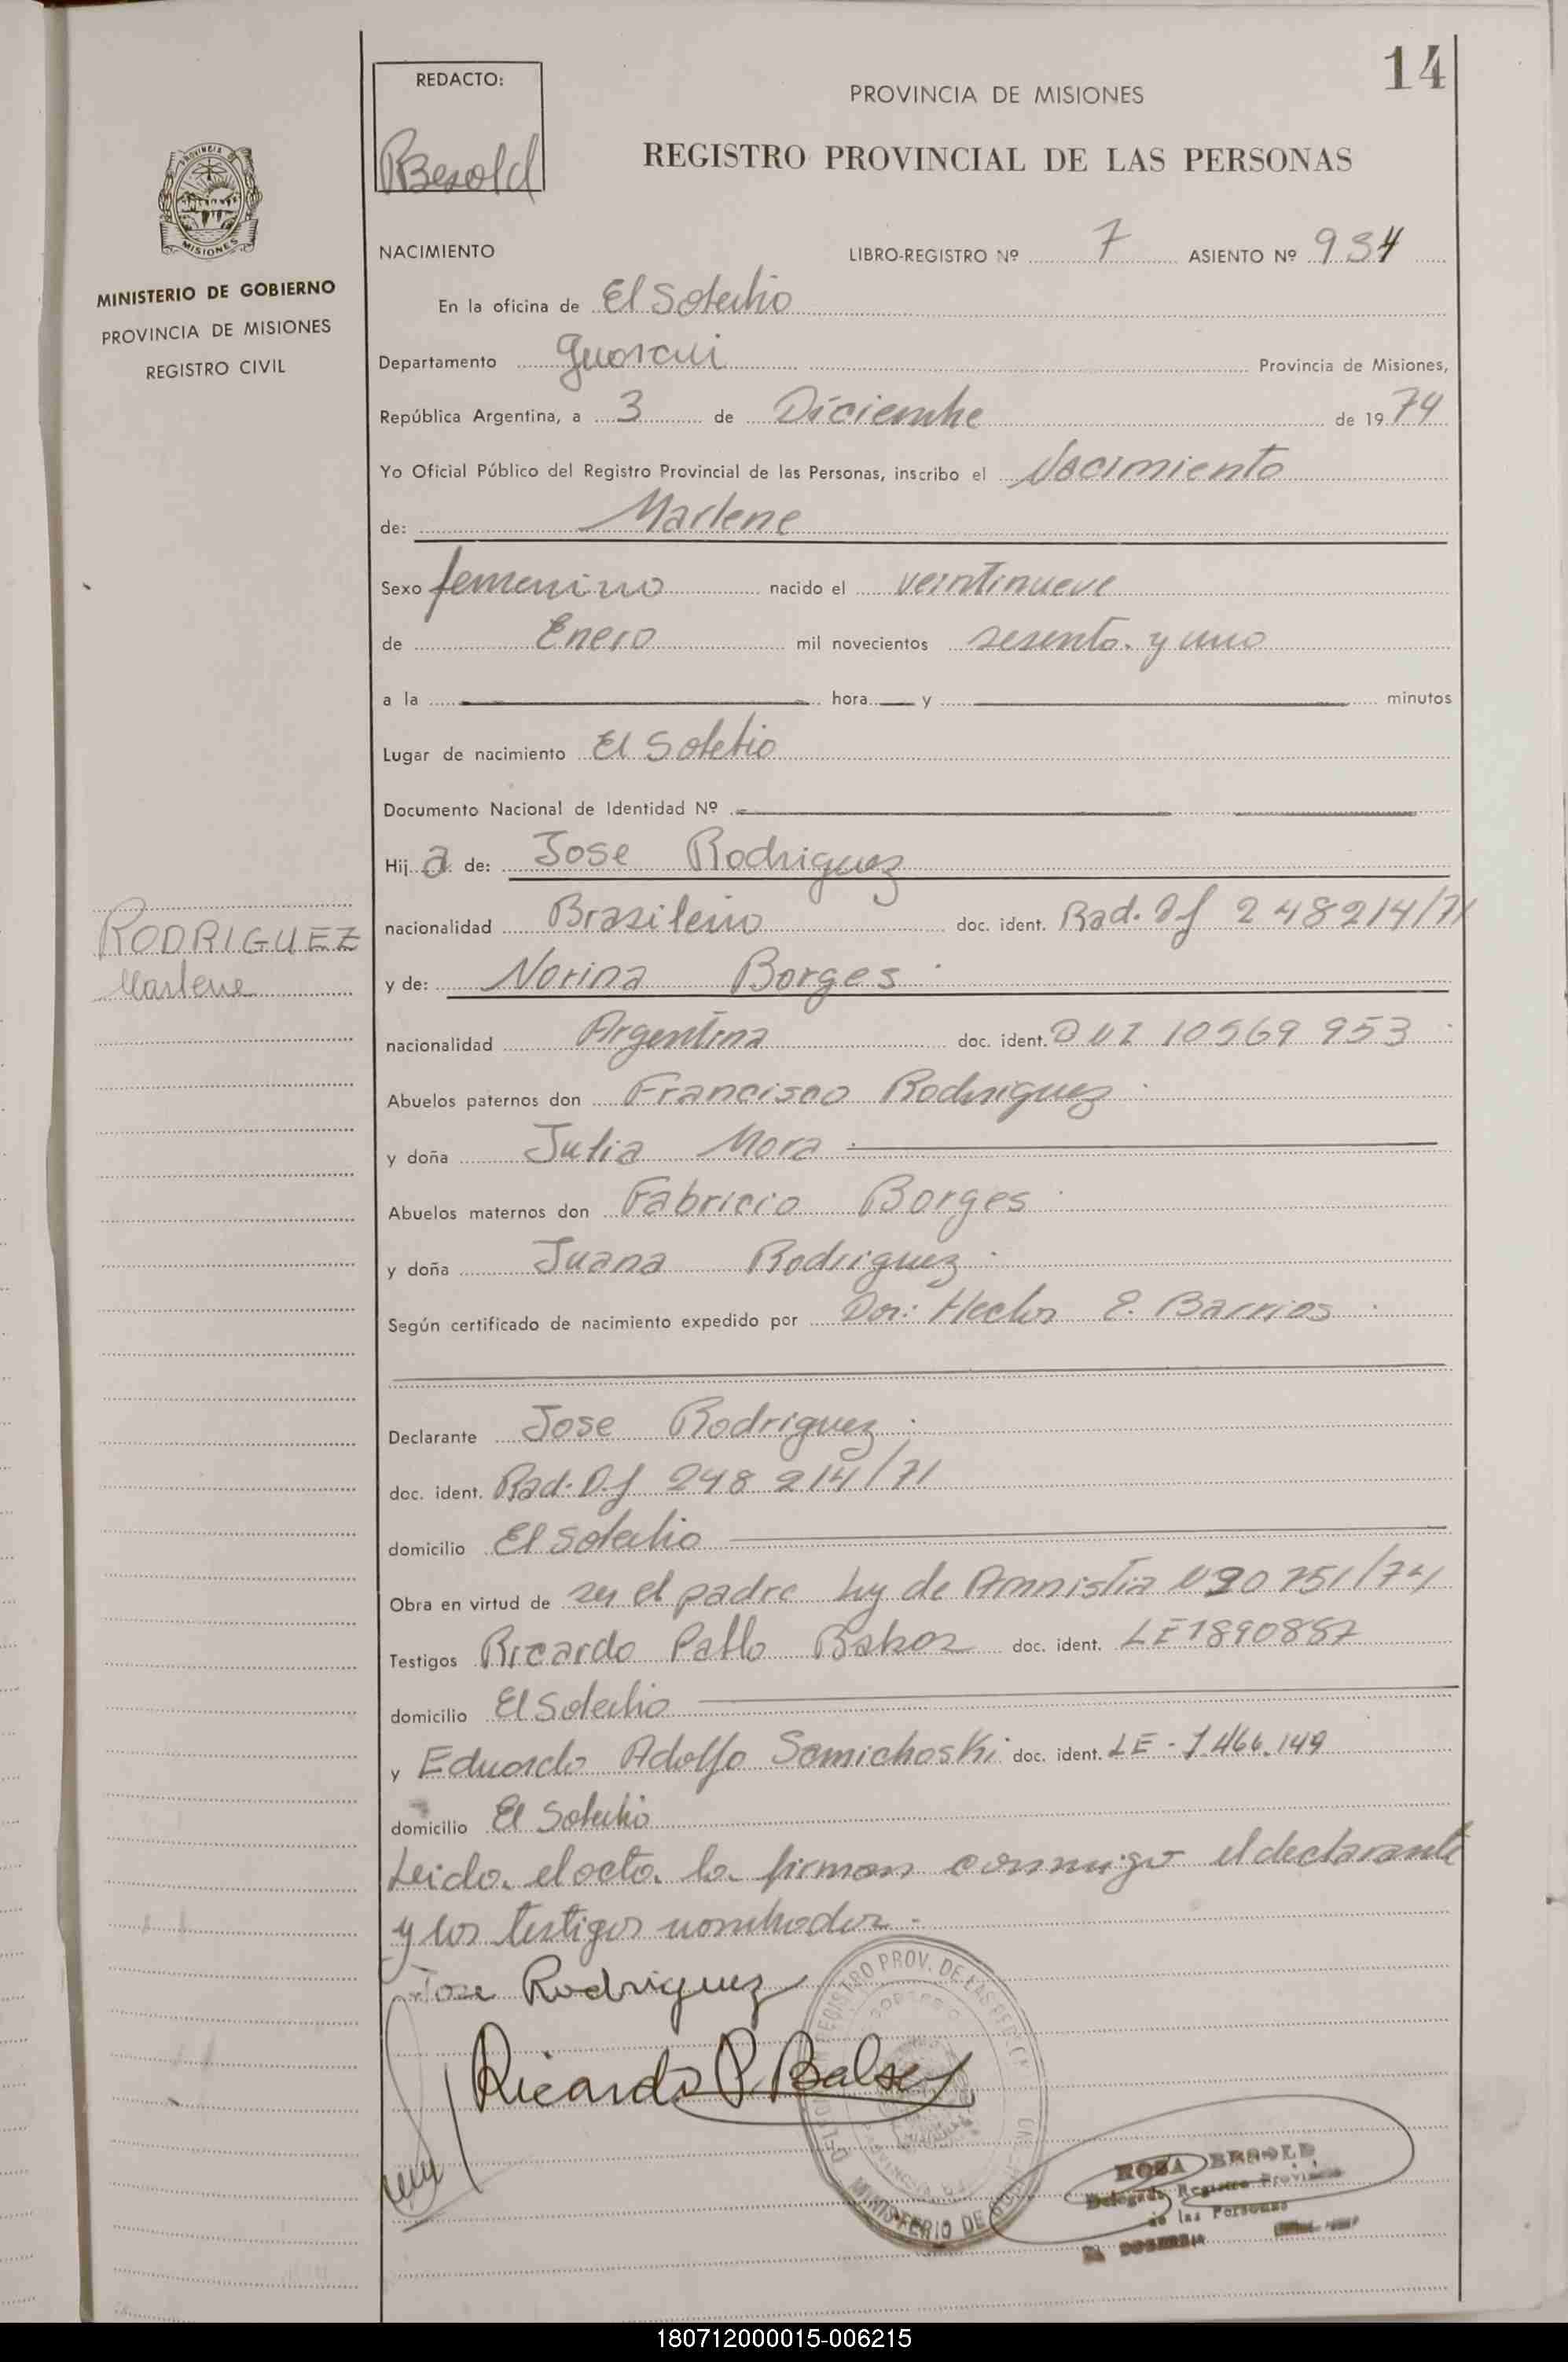 14
REDACTO:
PROVINCIA DE MISIONES
RBesold
REGISTRO PROVINCIAL DE LAS PERSONAS
PROVINCIA DE
MISIONES
MINISTERIO DE GOBIERNO
PROVINCIA DE MISIONES
REGISTRO CIVIL
NACIMIENTO LIBRO-REGISTRO Nº 7 ASIENTO Nº 934
En la oficina de El Soberbio
Departamento Guarani Provincia de Misiones,
República Argentina, a 3 de Diciembre de 1974
Yo Oficial Público del Registro Provincial de las Personas, inscribo el Nacimiento
de: Marlene
Sexo femenino nacido el veintinueve
de Enero mil novecientos sesenta y uno
a la hora y minutos
Lugar de nacimiento El Soberbio
Documento Nacional de Identidad Nº
Hij a de: Jose Rodriguez
RODRIGUEZ
Marlene
nacionalidad Brasilero doc. ident. Rad. 248214/71
y de: Norina Borges
nacionalidad Argentina doc. ident. 10569953
Abuelos paternos don Francisco Rodriguez
y doña Julia Mora
Abuelos maternos don Fabricio Borges
y doña Juana Rodriguez
Según certificado de nacimiento expedido por Dor: Hector E. Barrios
Declarante Jose Rodriguez
doc. ident. Rad. D.J 248214/71
domicilio El Soberbio
Obra en virtud de ser el padre Ley de Amnistia 20751/74
Testigos Ricardo Pablo doc. ident. LE 1890887
domicilio El Soberbio
y Eduardo Adolfo Samichoski doc. ident. LE - 7.466.149
domicilio El Soberbio
Leida el acta la firman conmigo el declarante
y los testigos nombrados.
Jose Rodriguez
REGISTRO PROV. DE LAS
MINISTERIO DE
Ricardo P. Balsey
ROSA BESOLD
Delegada Registro Provincial
de las Personas
EL SOBERBIO
180712000015-006215